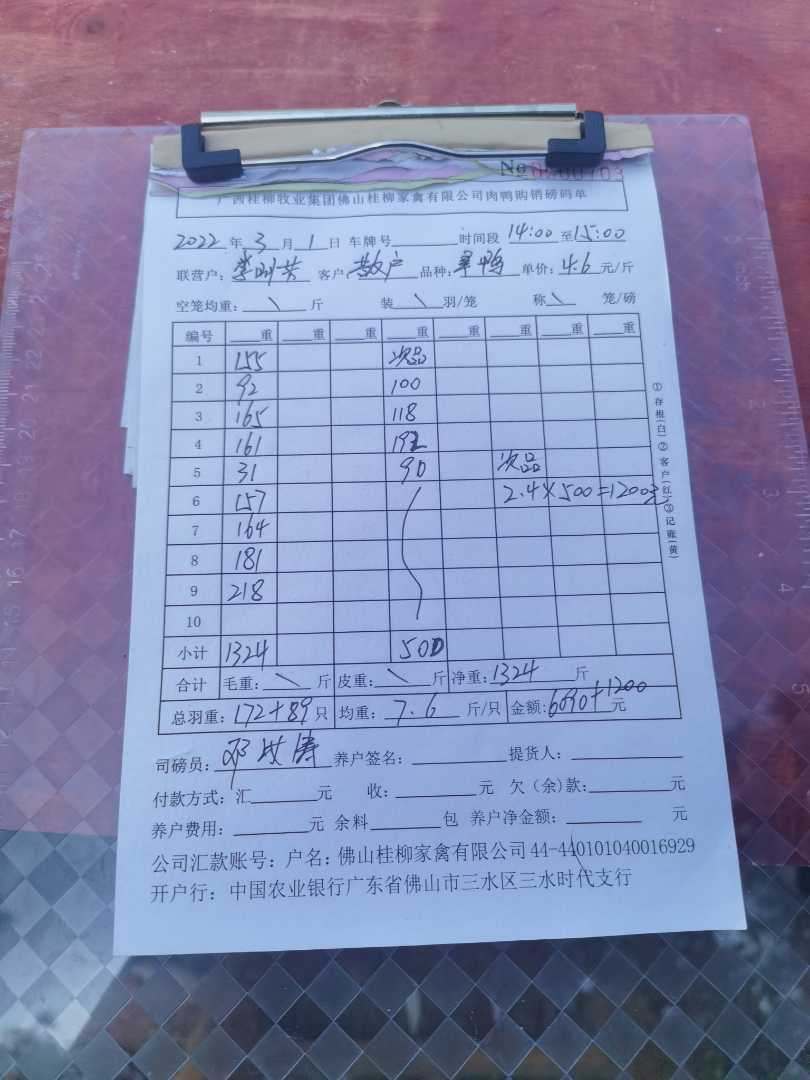 No 0000703
广西桂柳牧业集团佛山桂柳家禽有限公司肉鸭购销磅码单
2022年3月1日 车牌号 时间段 14:00至15:00
联营户: 客户: 散户 品种: 鸭 单价: 4.6元/斤
空笼均重: \ 斤 装 \ 羽/笼 称 \ 笼/磅
编号 重 重 重 重 重 重 重 重
1 155 次品
2 92 100
3 165 118
4 161 192
5 31 90 次品
6 157 2.4×500=1200元
7 164
8 181
9 218
10
小计 1324 500
合计 毛重: \ 斤 皮重: \ 斤 净重: 1324 斤
总羽重: 172+89只 均重: 7.6 斤/只 金额: 6090+1200元
司磅员: 养户签名: 提货人:
付款方式: 汇 元 收: 元 欠(余)款: 元
养户费用: 元 余料 包 养户净金额: 元
公司汇款账号: 户名: 佛山桂柳家禽有限公司 44-440101040016929
开户行: 中国农业银行广东省佛山市三水区三水时代支行
①存根(白)②客户(红)③记账(黄)